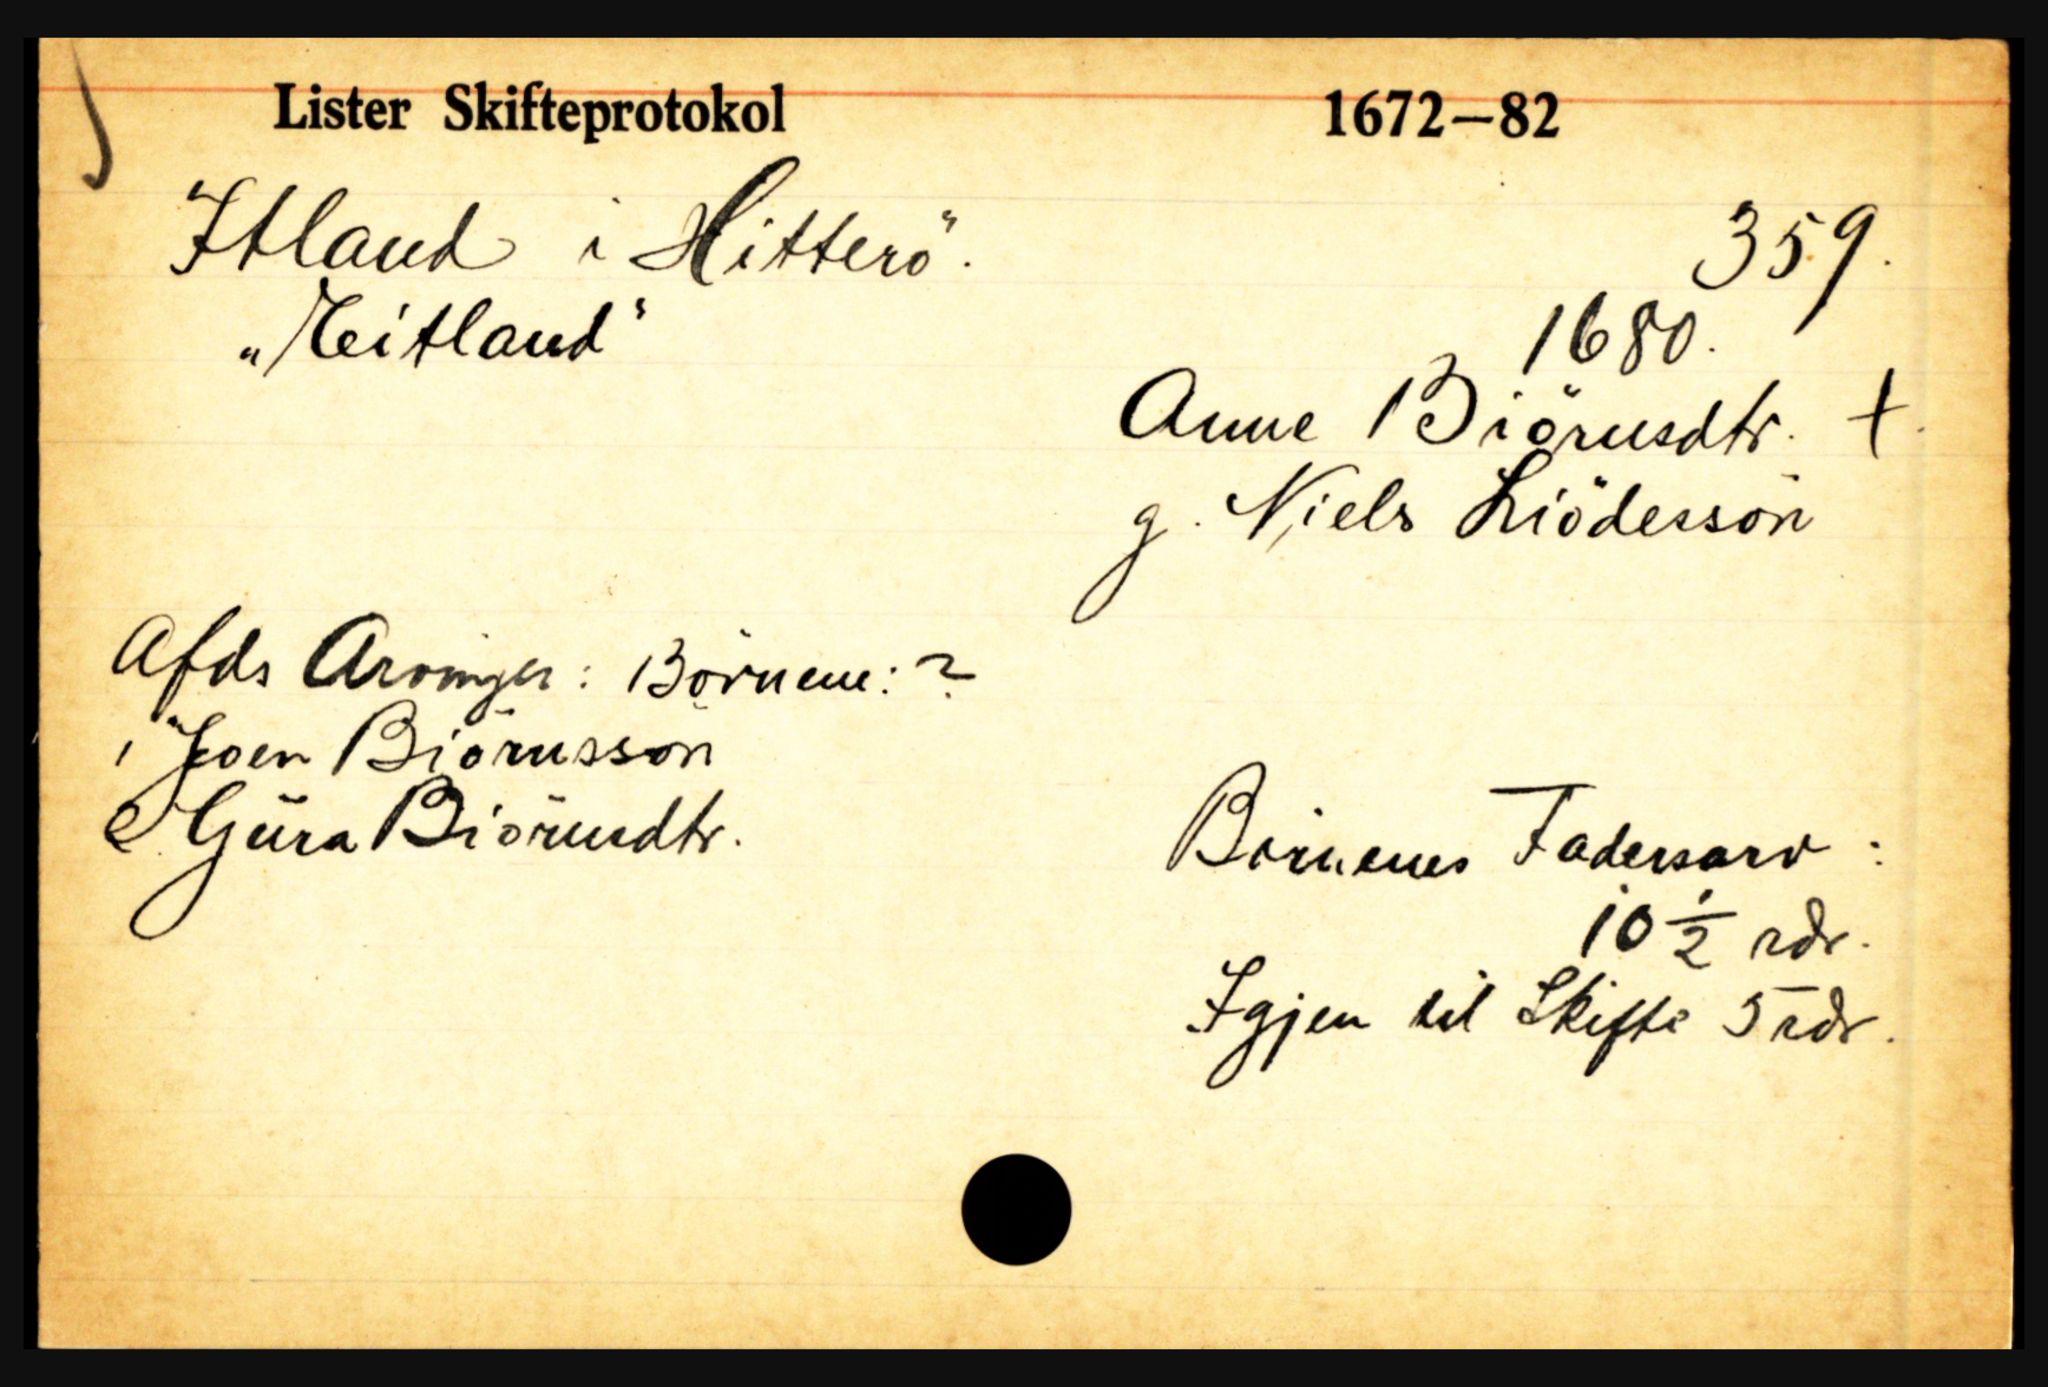 Lister Skifteprotokol 1672—82
Itland i Hitterö. 359.
"Reitland" 1680.
Anne Biörnsdtr. †.
g. Niels Liödessön
Afds Arvinger: Börnene: ?
1 Joen Biörnssön
2. Güra Biörnsdtr.
Börnenes Fadersarv:
10 1/2 rdr.
Igjen til Skifte 5 rdr.